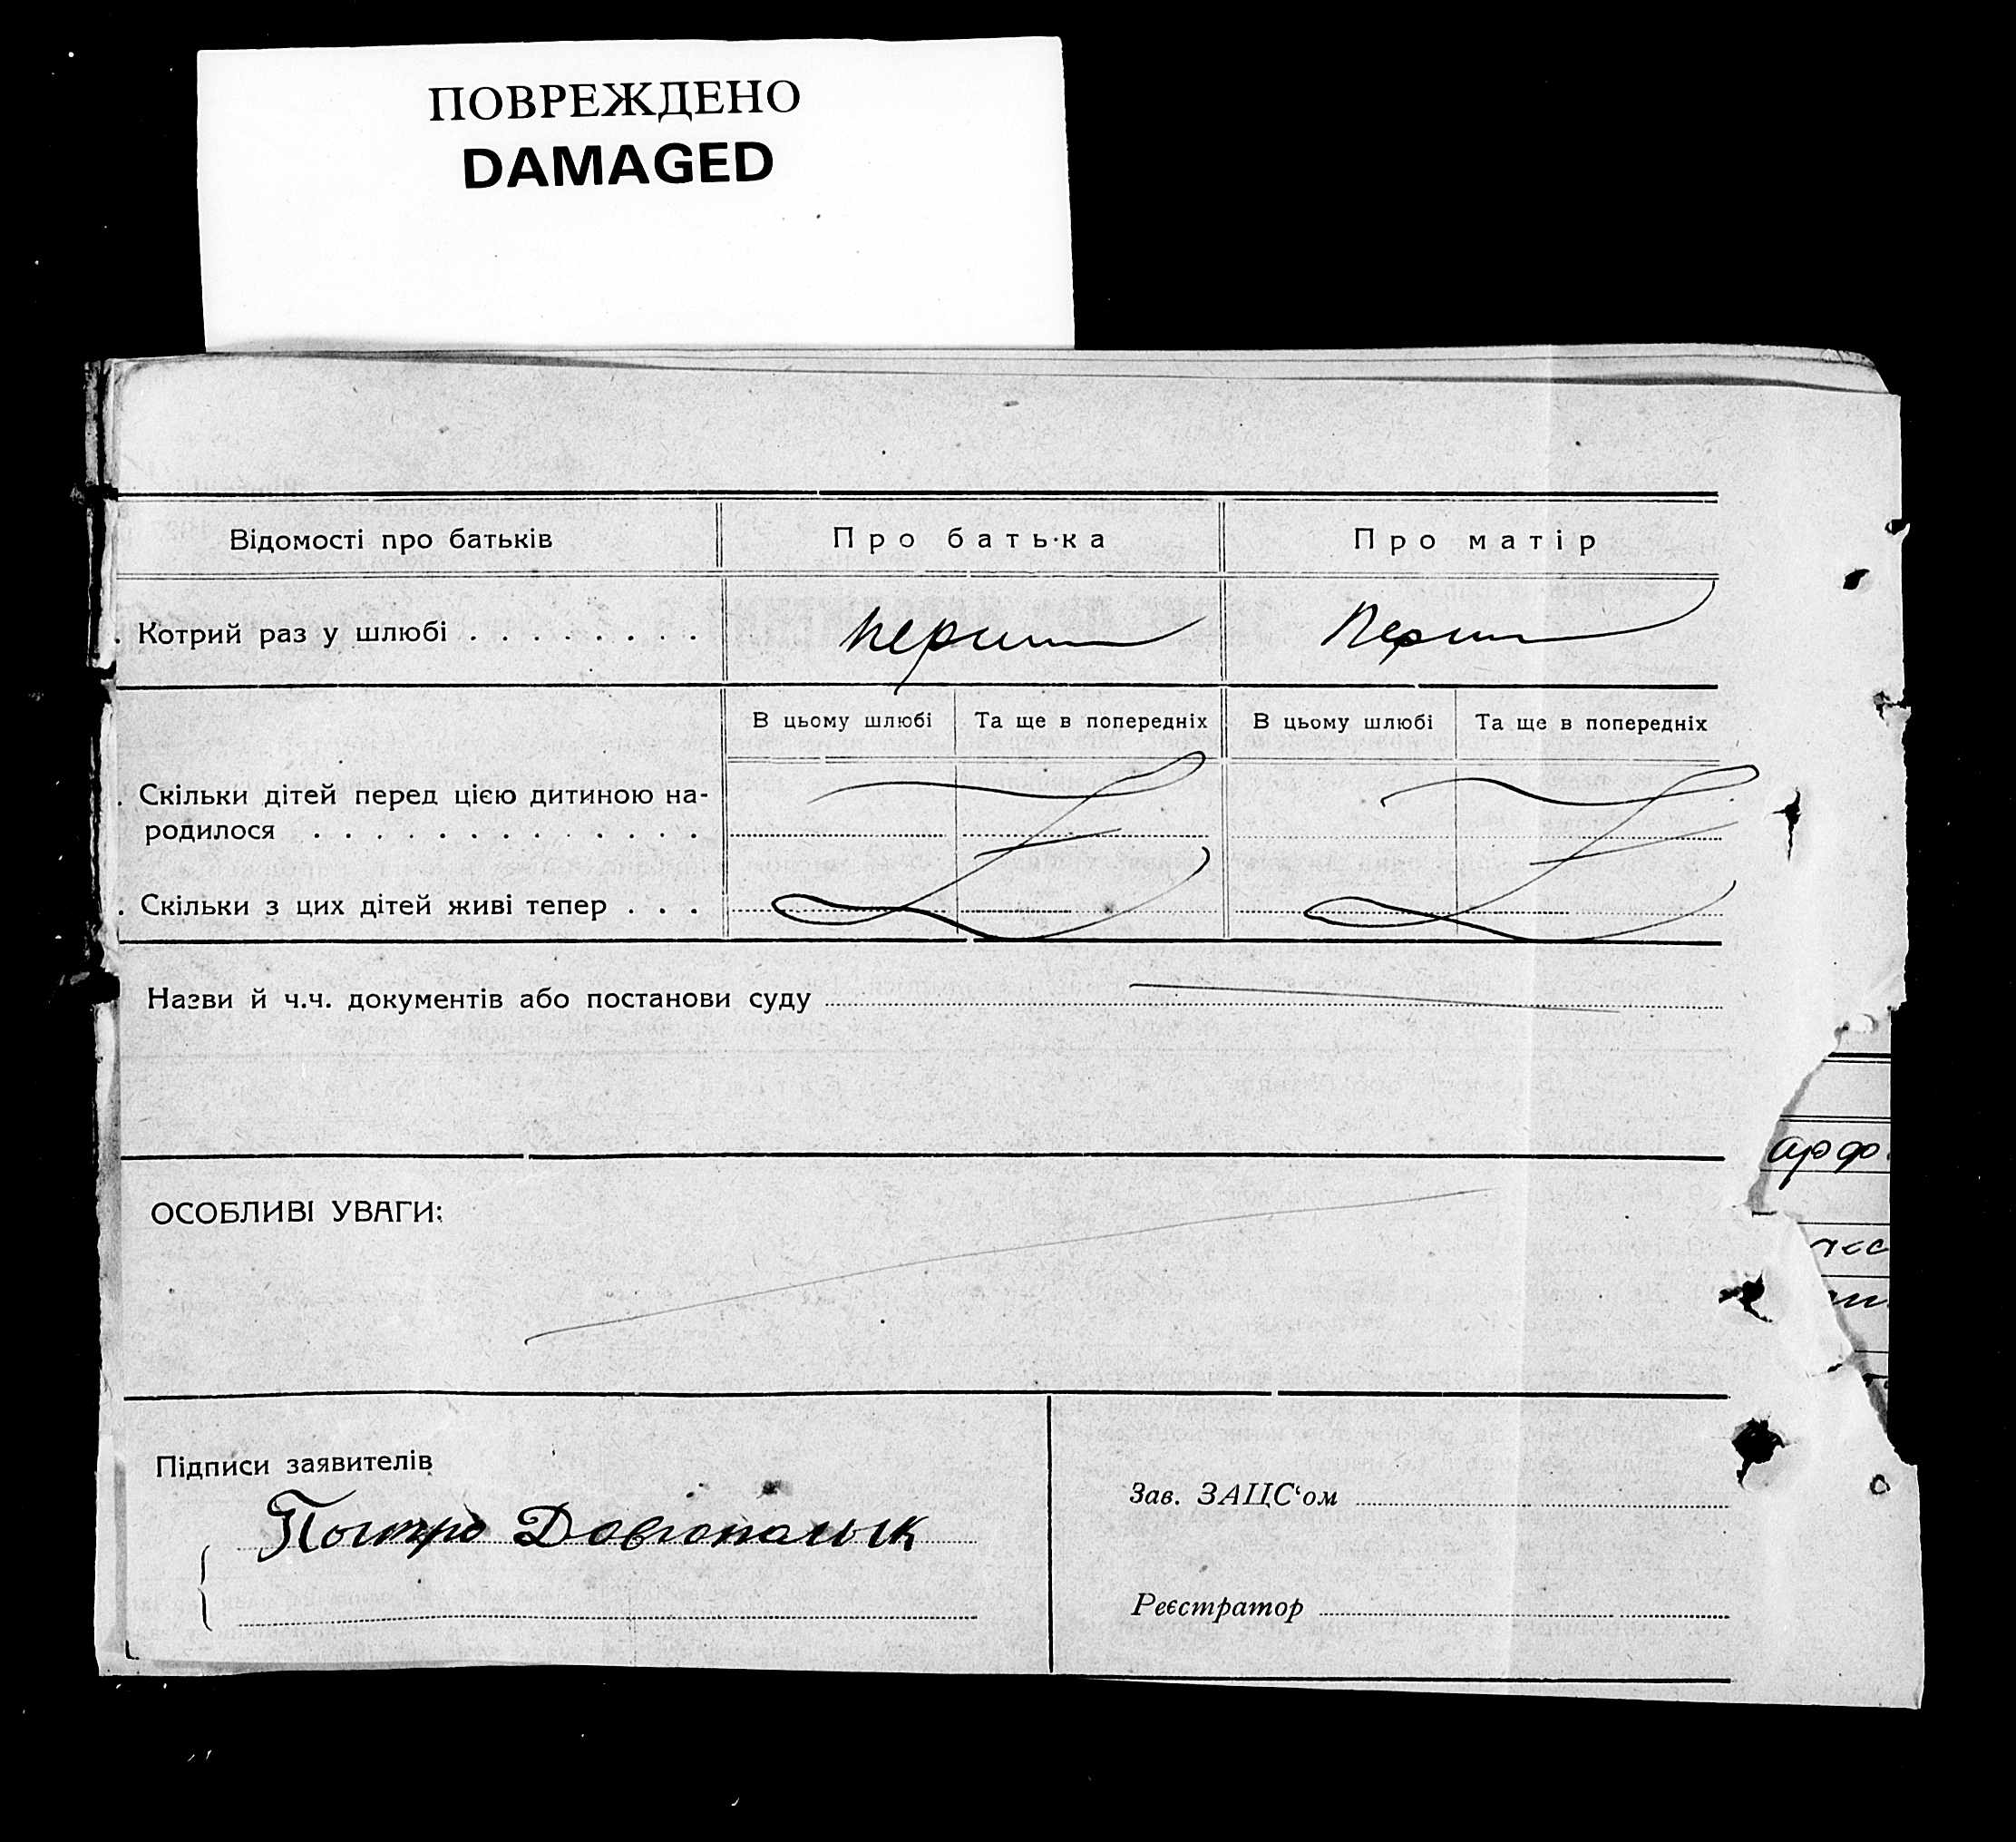 ПОВРЕЖДЕНО
DAMAGED
Відомості про батьків
Про батька
Про матір
Котрий раз у шлюбі . . . . . . . .
перший
Перший
В цьому шлюбі
Та ще в попередніх
В цьому шлюбі
Та ще в попередніх
Скільки дітей перед цією дитиною на-
родилося . . . . . . . . . . . . .
Скільки з цих дітей живі тепер . . .
Назви й ч.ч. документів або постанови суду
арф
ОСОБЛИВІ УВАГИ:
Підписи заявителів
Зав. ЗАЦС‘ом
Реєстратор